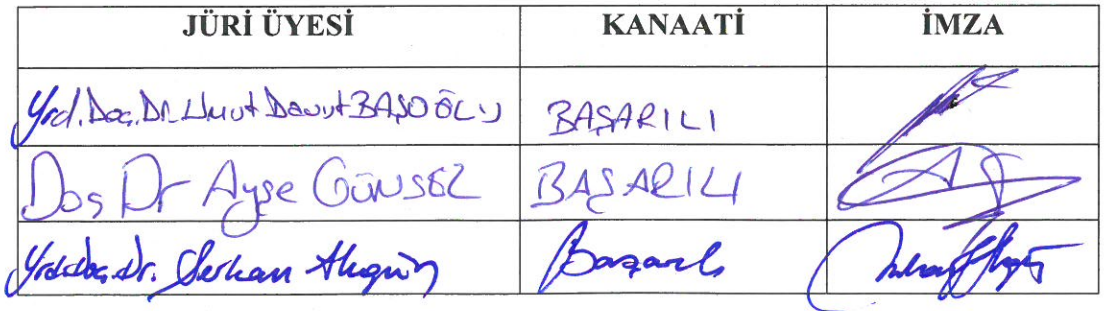 JÜRİ ÜYESİ KANAATİ İMZA
Yrd. Doç. Dr. Umut Davut BAŞOĞLU BAŞARILI
Doç Dr Ayşe GÜNSEL BAŞARILI
Yrd. Doç. Dr. Serkan Başarılı